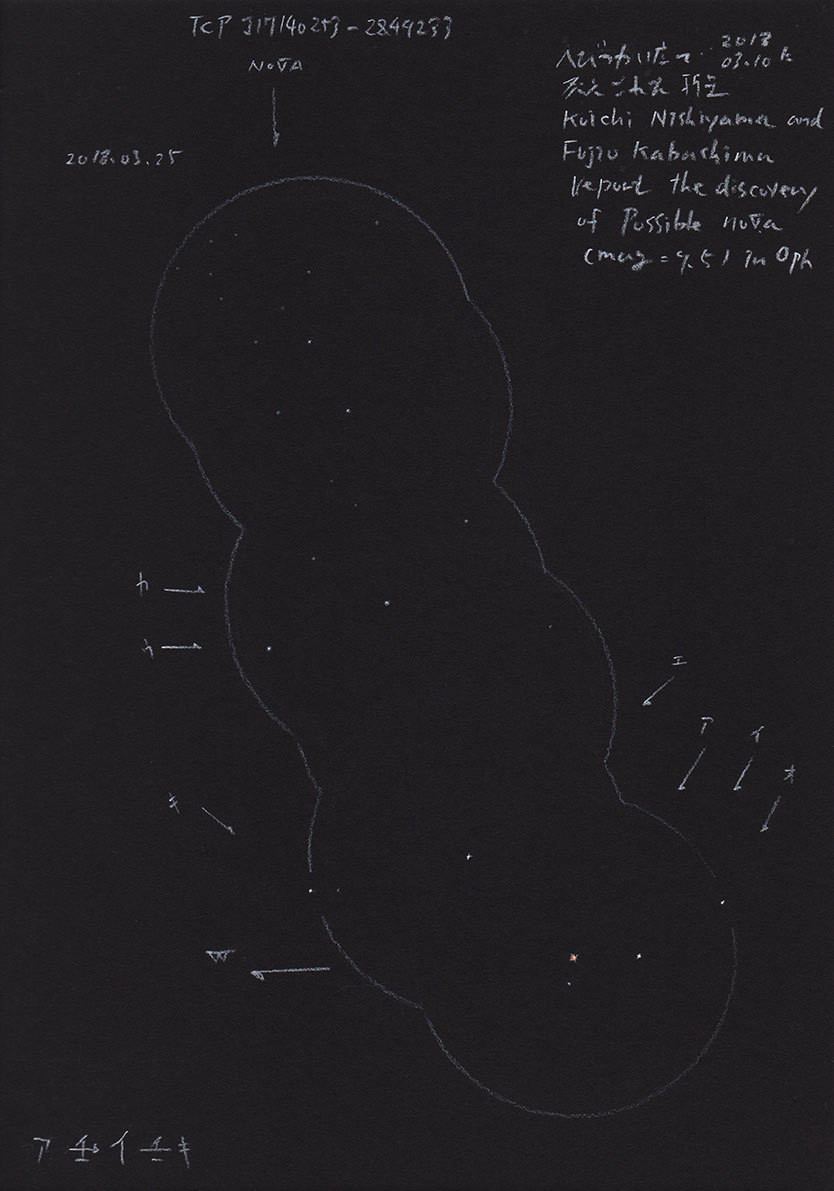 TCP J17140253-2849233
NOVA
2018.03.25
2018
へびつかい座 03.10 に
Koichi Nishiyama and
Fujio Kabashima
Report the discovery
of Possible nova
(mag = 9.5) in Oph
カ
ウ
エ
ア
イ
オ
キ
W